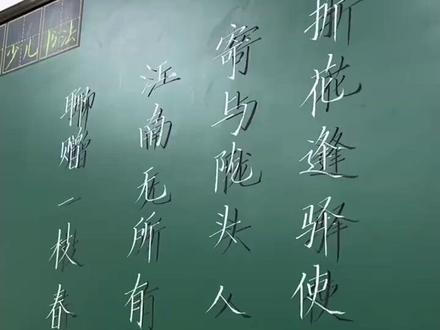 少儿书法
折花逢驿使
寄与陇头人
江南无所有
聊赠一枝春